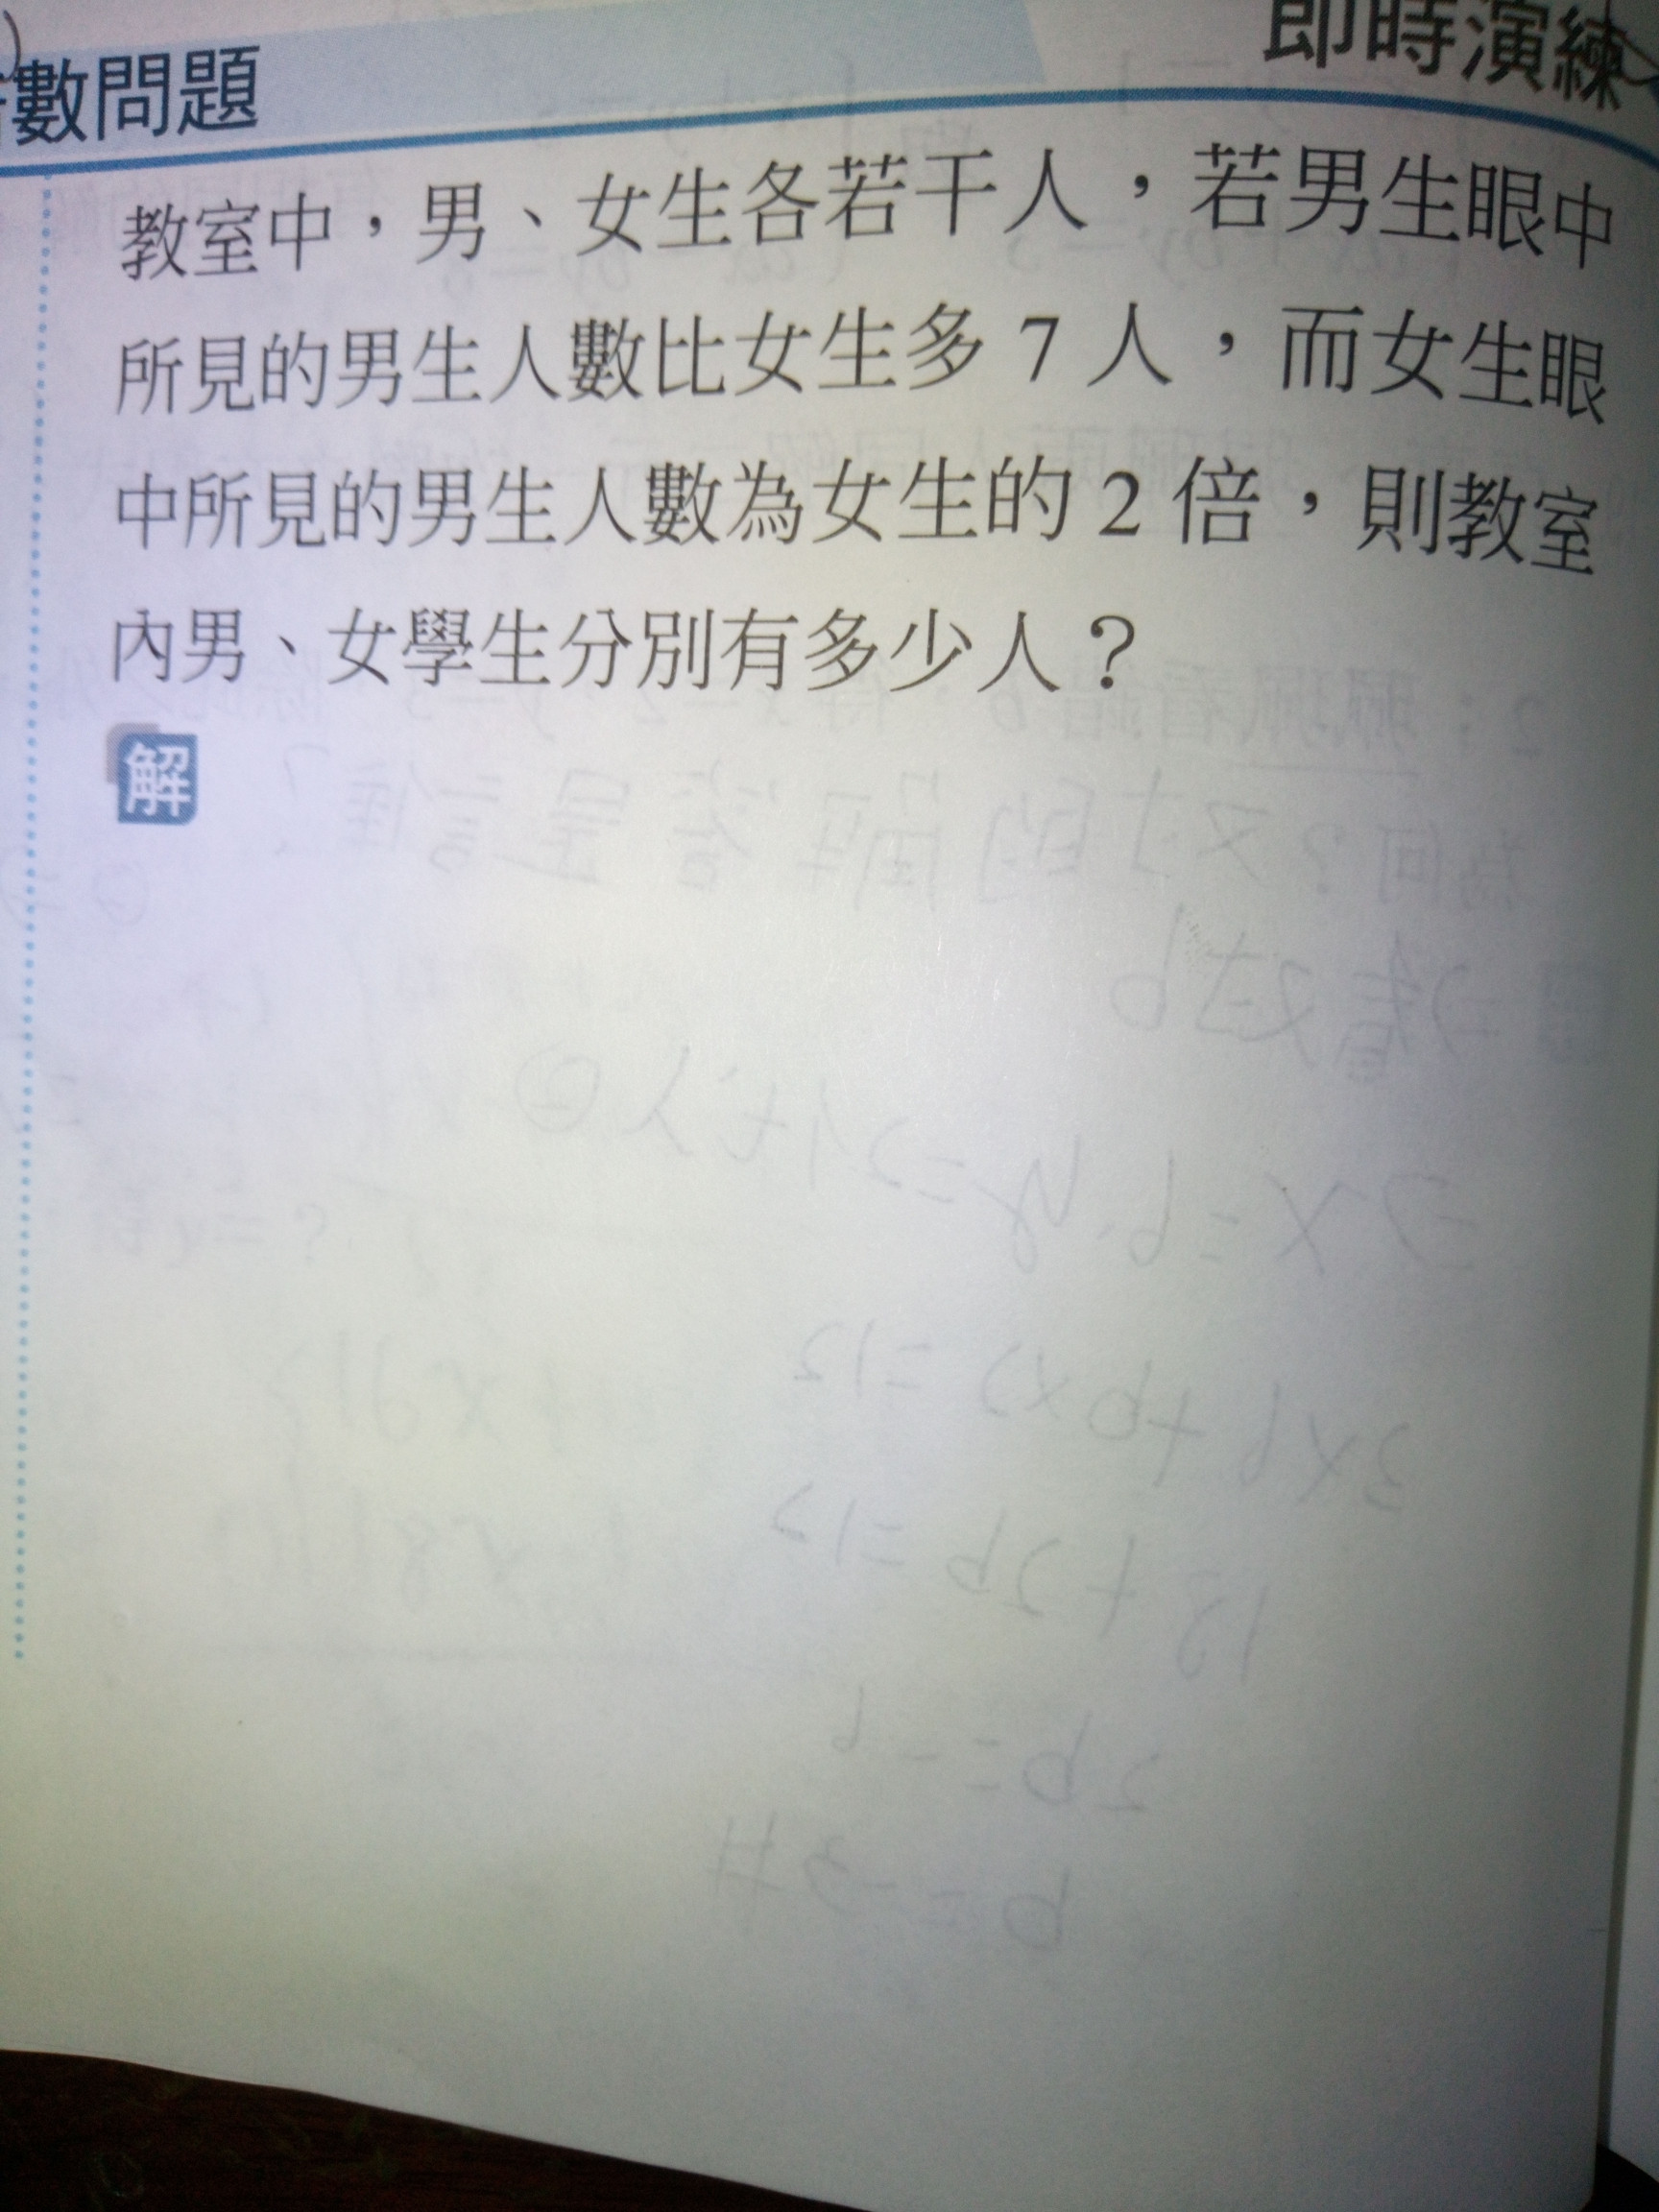 數問題
即時演練
教室中，男、女生各若干人，若男生眼中
所見的男生人數比女生多 7 人，而女生眼
中所見的男生人數為女生的 2 倍，則教室
內男、女學生分別有多少人？
解